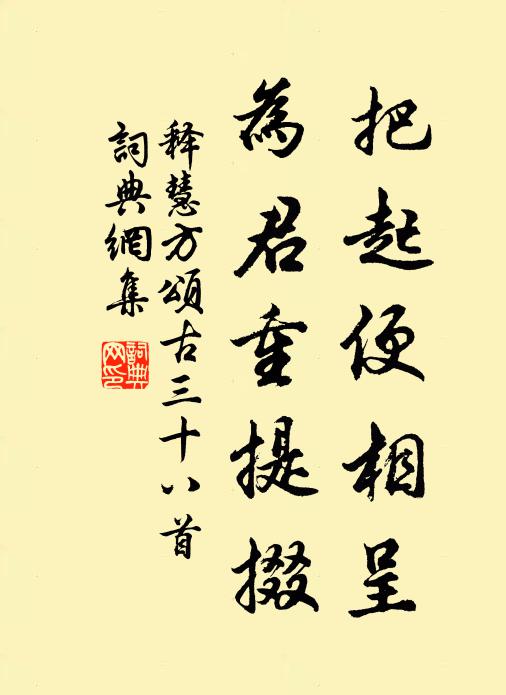 把起便相呈
為君重提掇
释慧方頌古三十八首
詞典網集
詞典網印